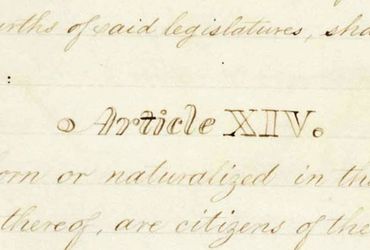 urths of said legislatures, sha
:
Article XIV.
orn or naturalized in the
thereof, are citizens of the